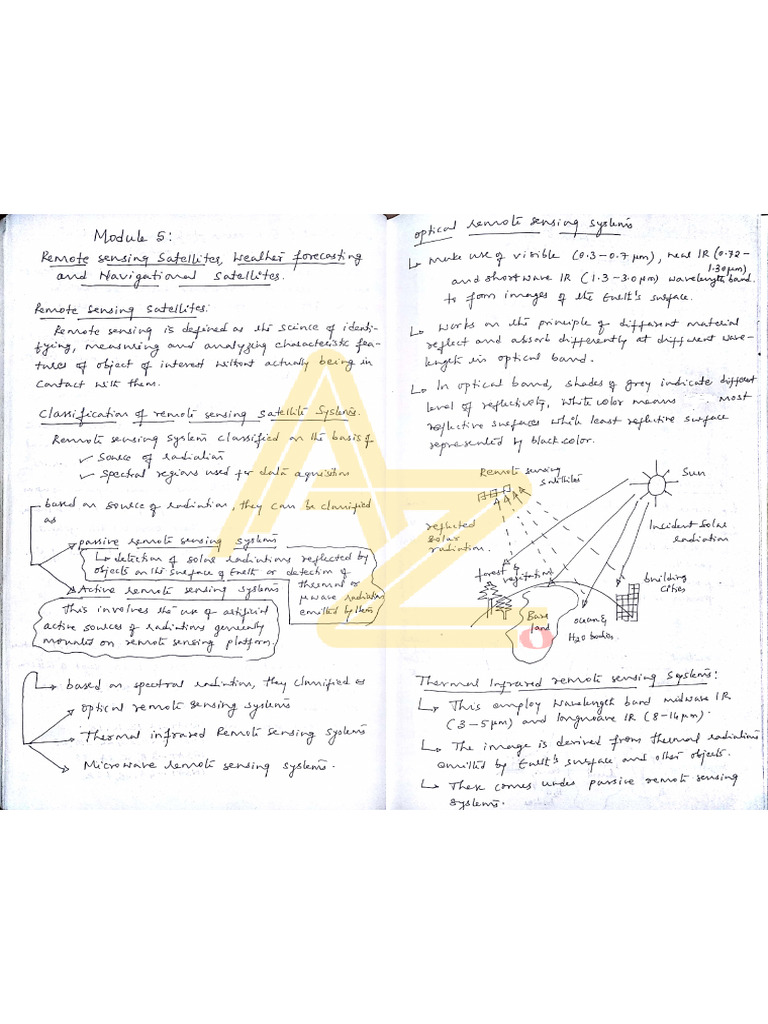 Module 5:
Remote sensing Satellites, Weather forecasting
and Navigational Satellites.
Remote Sensing Satellites:
Remote sensing is defined as the science of identi-
fying, measuring and analyzing characteristic fea-
tures of object of interest without actually being in
contact with them.
Classification of remote sensing Satellite Systems.
Remote sensing System classified on the basis of
✓ Source of radiation
✓ Spectral regions used for data aquisition
based on source of radiation, they can be classified
as
passive remote sensing systems
↳ detection of solar radiations reflected by
objects on the surface of Earth or detection of
thermal or
μwave radiation
emitted by them
Active remote sensing systems
This involves the use of artificial
active sources of radiations generally
mounted on remote sensing platform.
↳ based on spectral radiation, they classified as
optical remote sensing systems
Thermal infrared Remote sensing systems
Microwave remote sensing systems.
optical remote sensing systems
↳ make use of visible (0.3-0.7 μm), near IR (0.72-
1.30μm)
and shortwave IR (1.3-3.0μm) wavelength band
to form images of the Earth's surface.
↳ Works on the principle of different material
reflect and absorb differently at different wave-
length in optical band.
↳ In optical band, shades of grey indicate different
level of reflectivity, white color means most
reflective surfaces while least reflective surface
represented by black color.
Remote sensing
satellites
Sun
reflected
solar
radiation.
Incident Solar
radiation
forest &
vegetation
building
Cities
Bare
land
ocean &
H2O bodies
Thermal Infrared remote sensing Systems:
↳ This employ wavelength band midwave IR
(3-5μm) and longwave IR (8-14μm).
↳ The image is derived from thermal radiations
emitted by Earth's surface and other objects.
↳ These comes under passive remote sensing
systems.
AZ